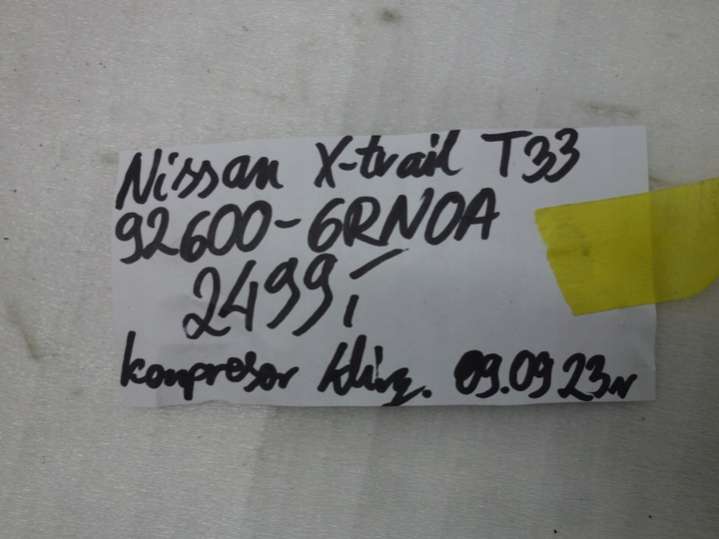 Nissan X-trail T33
92600-6RN0A
2499,-
kompresor klim. 09.09 23r